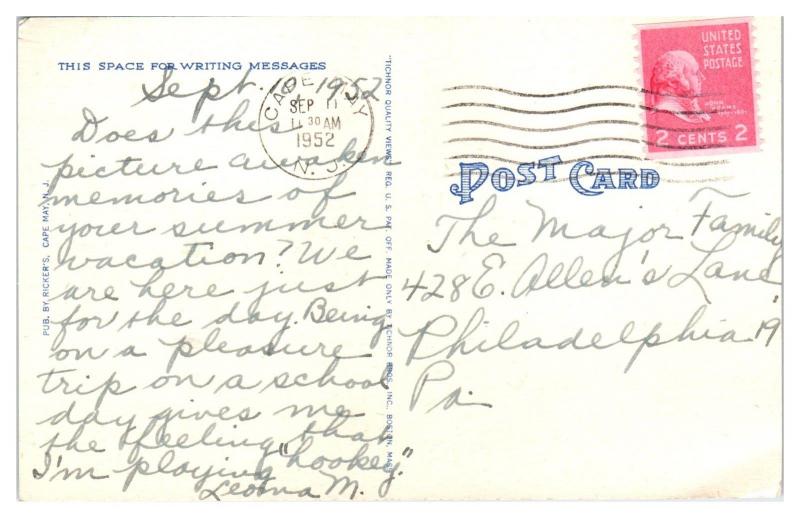 THIS SPACE FOR WRITING MESSAGES
Sept. 10, 1952
Does this
picture awaken
memories of
your summer
vacation? We
are here just
for the day. Being
on a pleasure
trip on a school
day gives me
the feeling that
I'm playing "hookey."
Leona M.
PUB. BY RICKER'S, CAPE MAY, N. J.
"TICHNOR QUALITY VIEWS," REG. U. S. PAT. OFF. MADE ONLY BY TICHNOR BROS., INC., BOSTON, MASS.
CAPE MAY
SEP 11
11 30 AM
1952
N. J.
UNITED
STATES
POSTAGE
JOHN
ADAMS
2 CENTS 2
POST CARD
The Major Family
428 E. Allen's Lane,
Philadelphia 19
Pa.